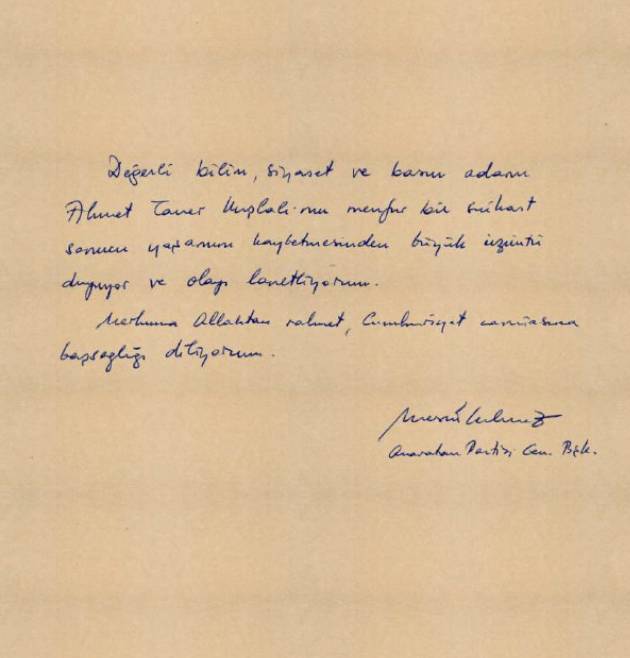 Değerli bilim, siyaset ve basın adamı
Ahmet Taner Kışlalı'nın menfur bir suikast
sonucu yaşamını kaybetmesinden büyük üzüntü
duyuyor ve olayı lanetliyorum.
Merhuma Allahtan rahmet, Cumhuriyet camiasına
başsağlığı diliyorum.
Mesut Yılmaz
Anavatan Partisi Gen. Bşk.